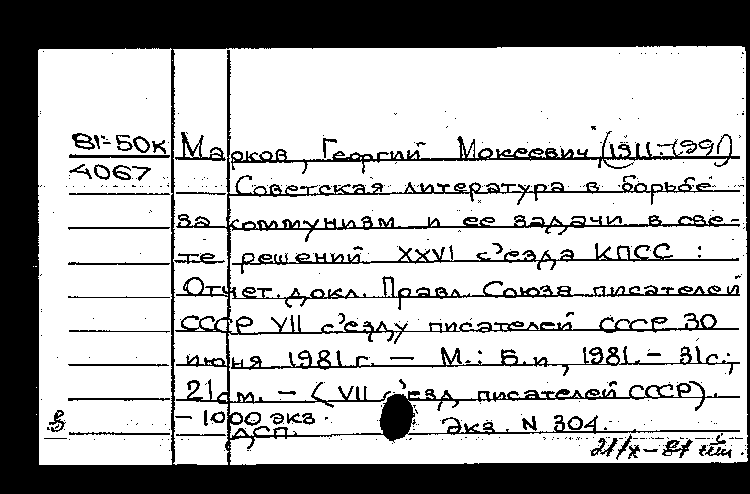 81-50к Марков, Георгий Мокеевич (1911-1991)
4067
Советская литература в борьбе
за коммунизм и ее задачи в све-
те решений XXVI с'езда КПСС :
Отчет. докл. Правл. Союза писателей
СССР VII с'езду писателей СССР 30
июня 1981 г. — М.: Б.и, 1981. - 31с.;
21см. - (VII с'езд писателей СССР).
- 1000 экз.
ДСП. Экз. N 304.
21/X-81